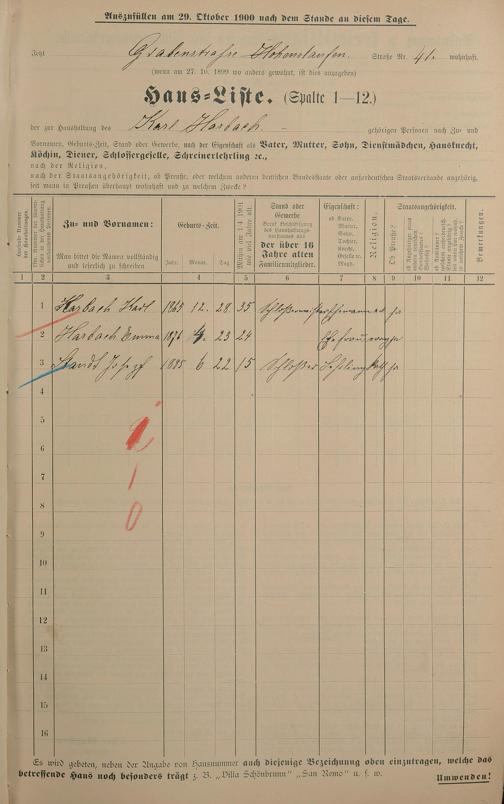 Auszufüllen am 29. Oktober 1900 nach dem Stande an diesem Tage.
Jetzt Grabenstraße Hohenstaufen. Straße Nr. 41. wohnhaft.
(wenn am 27. 10. 1899 wo anders gewohnt, ist dies anzugeben)
Haus-Liste. (Spalte 1—12.)
der zur Haushaltung des Karl Harbach. gehörigen Personen nach Zu- und
Vornamen, Geburts-Zeit, Stand oder Gewerbe, nach der Eigenschaft als Vater, Mutter, Sohn, Dienstmädchen, Hausknecht,
Köchin, Diener, Schlossergeselle, Schreinerlehrling ec.,
nach der Religion,
nach der Staatsangehörigkeit, ob Preuße, oder welchem anderen deutschen Bundesstaate oder außerdeutschen Staatsverbande angehörig,
seit wann in Preußen überhaupt wohnhaft und zu welchem Zwecke?
Zu- und Vornamen:
Man bittet die Namen vollständig
und leserlich zu schreiben
Geburts-Zeit.
Jahr. Monat. Tag
Stand oder
Gewerbe
der über 16
Jahre alten
Familienmitglieder.
Eigenschaft:
ob Vater,
Mutter,
Sohn,
Tochter,
Knecht,
Geselle ec.
Magd.
Religion.
Staatsangehörigkeit.
Ob Preuße?
Bemerkungen.
1 2 3 4 5 6 7 8 9 10 11 12
1 Harbach Karl 1865 12. 28 35 Schloßermeister Ehemann ja
2 Harbach Emma 1876 4. 23 24 Ehefrau ja
3 Josef 1885 6 22 15 Schloßer Lehrling kath ja
4
5
6
7
8
9
10
11
12
13
14
15
16
1
0
Es wird gebeten, neben der Angabe von Hausnummer auch diejenige Bezeichnung oben einzutragen, welche das
betreffende Haus noch besonders trägt z. B. „Villa Schönbrunn" „San Remo" u. s. w. Umwenden!